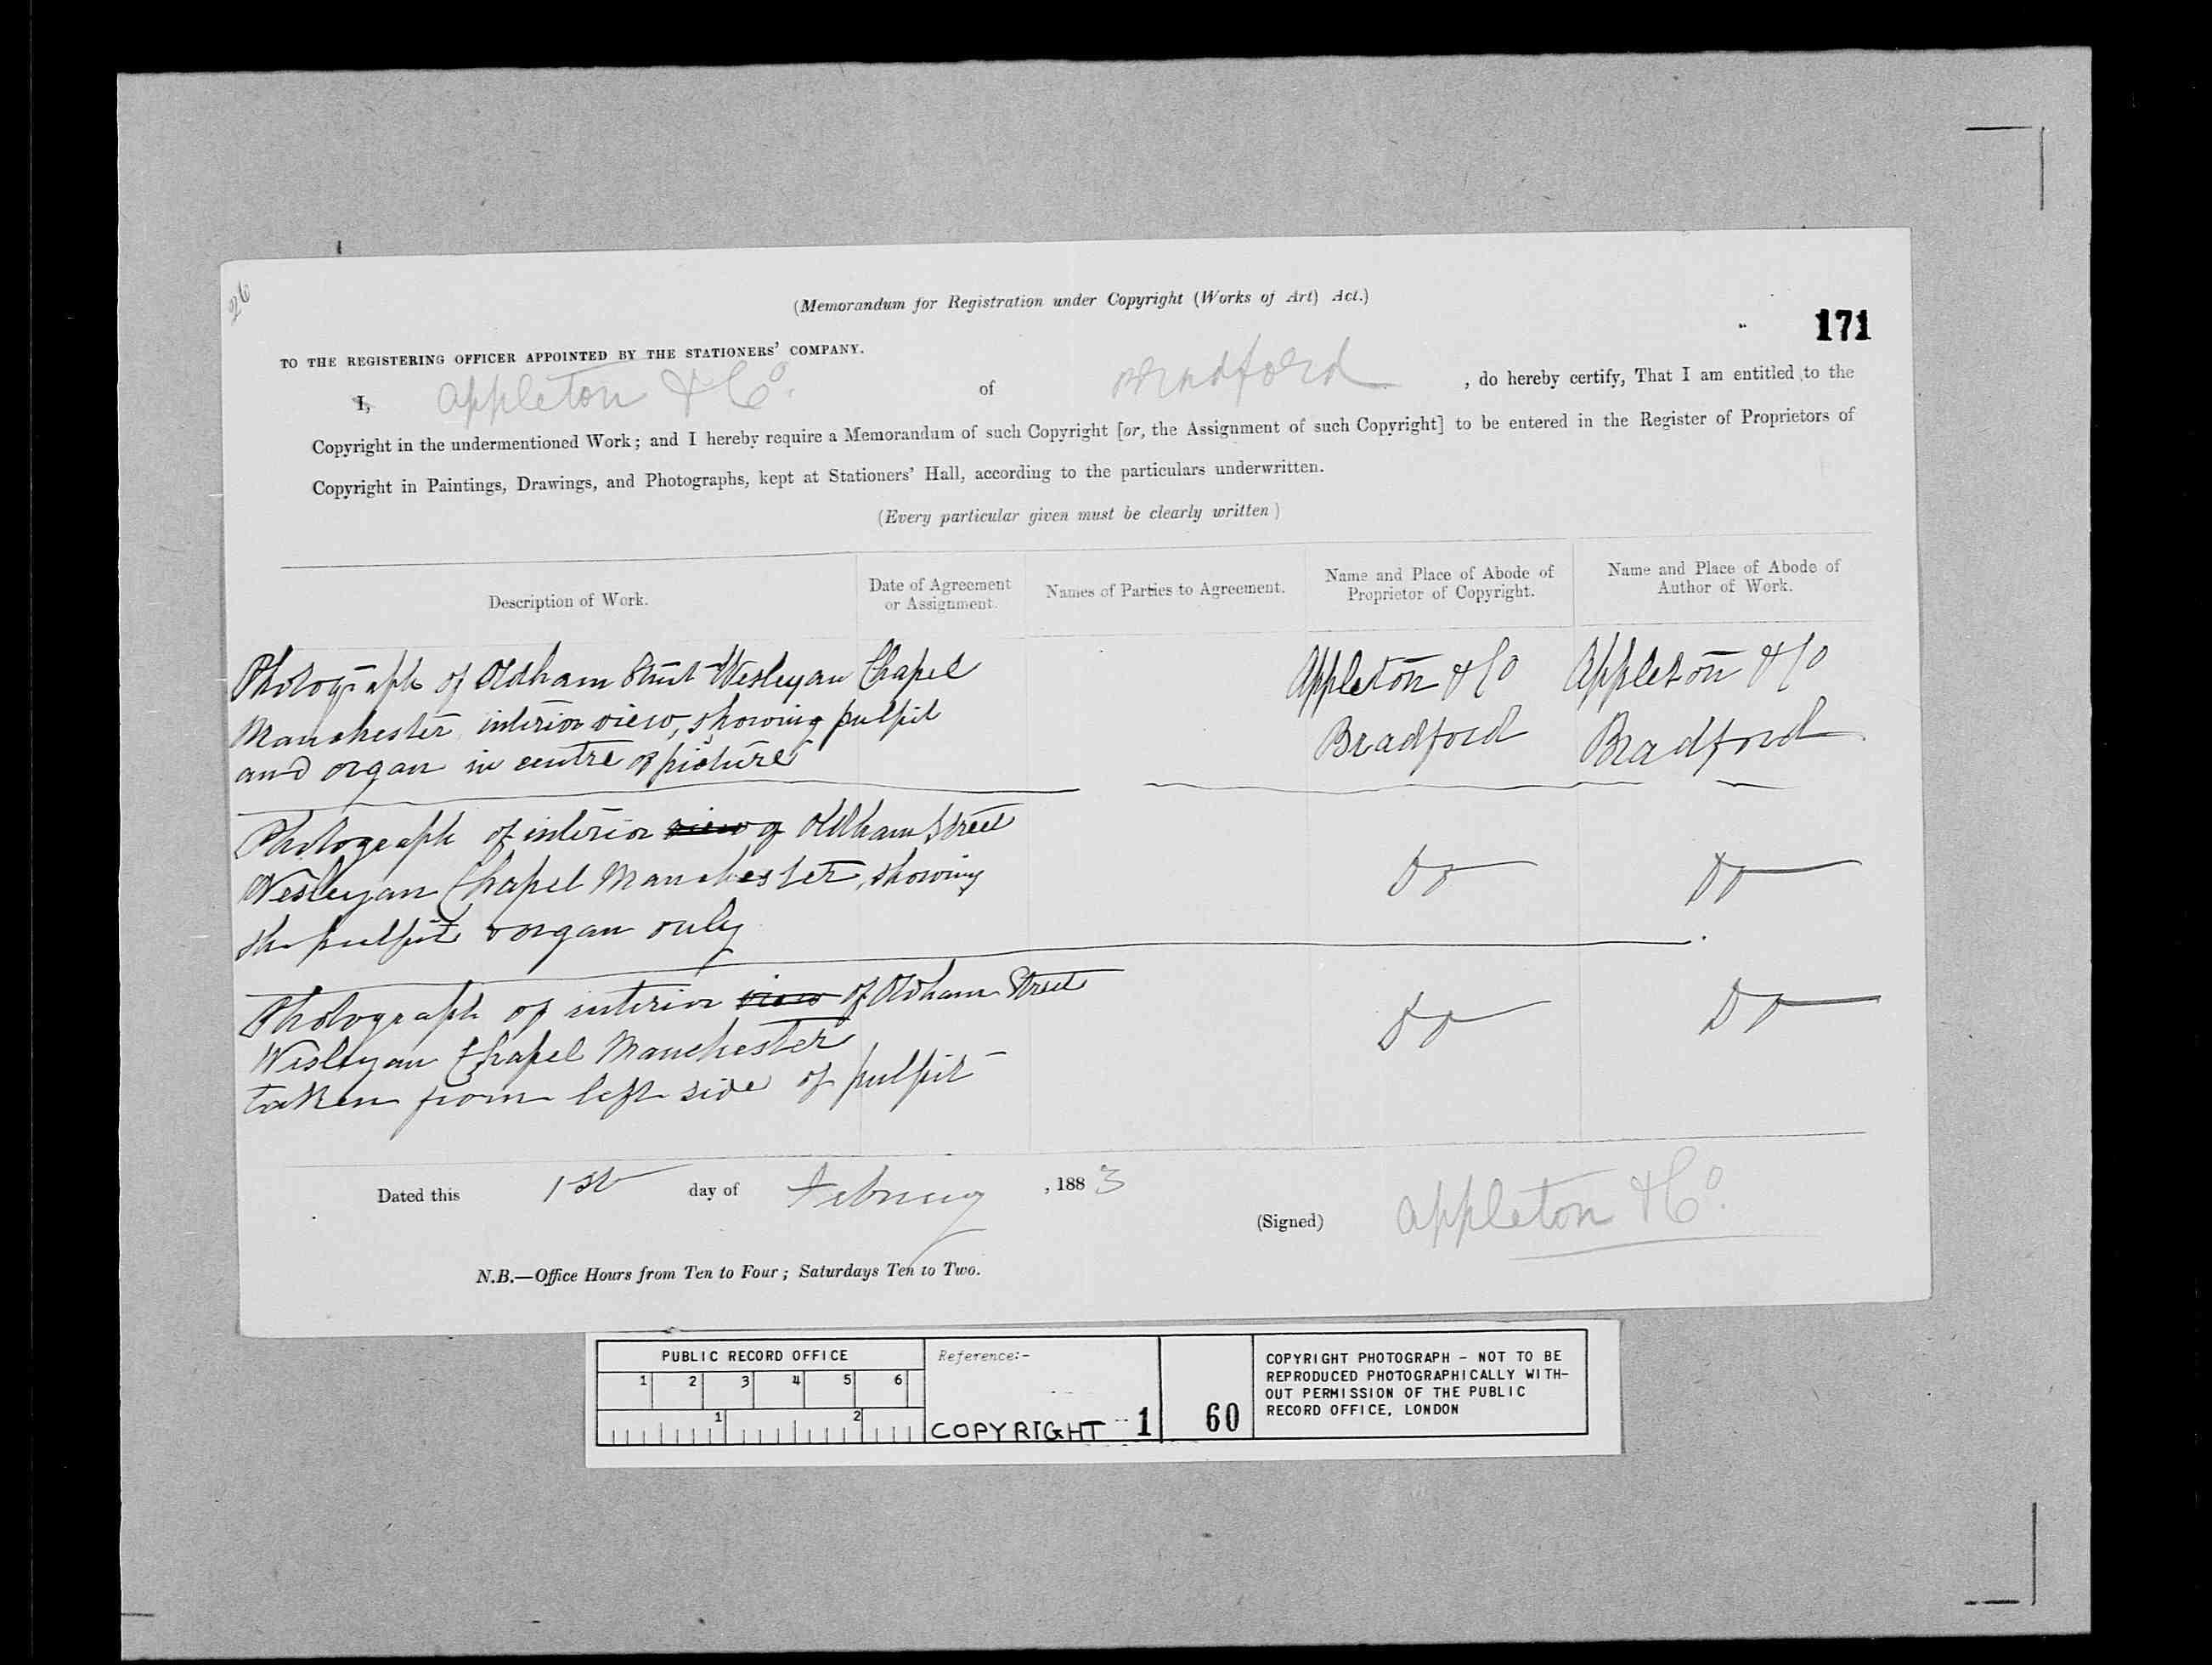 26
(Memorandum for Registration under Copyright (Works of Art) Act.)
171
TO THE REGISTERING OFFICER APPOINTED BY THE STATIONERS' COMPANY.
I, Appleton & Co. of Bradford, do hereby certify, That I am entitled to the
Copyright in the undermentioned Work; and I hereby require a Memorandum of such Copyright [or, the Assignment of such Copyright] to be entered in the Register of Proprietors of
Copyright in Paintings, Drawings, and Photographs, kept at Stationers' Hall, according to the particulars underwritten.
(Every particular given must be clearly written)
Description of Work.
Date of Agreement
or Assignment.
Names of Parties to Agreement.
Name and Place of Abode of
Proprietor of Copyright.
Name and Place of Abode of
Author of Work.
Photograph of Oldham Street Wesleyan Chapel
Manchester interior view, showing pulpit
and organ in centre of picture
Appleton & Co
Bradford
Appleton & Co
Bradford
Photograph of interior view of Oldham Street
Wesleyan Chapel Manchester, showing
the pulpit & organ only
Do
Do
Photograph of interior view of Oldham Street
Wesleyan Chapel Manchester
taken from left side of pulpit
Do
Do
Dated this 1st day of February, 1883
(Signed) Appleton & Co.
N.B.—Office Hours from Ten to Four; Saturdays Ten to Two.
PUBLIC RECORD OFFICE
1 2 3 4 5 6
1 2
Reference:-
COPYRIGHT 1
60
COPYRIGHT PHOTOGRAPH - NOT TO BE
REPRODUCED PHOTOGRAPHICALLY WITH-
OUT PERMISSION OF THE PUBLIC
RECORD OFFICE, LONDON